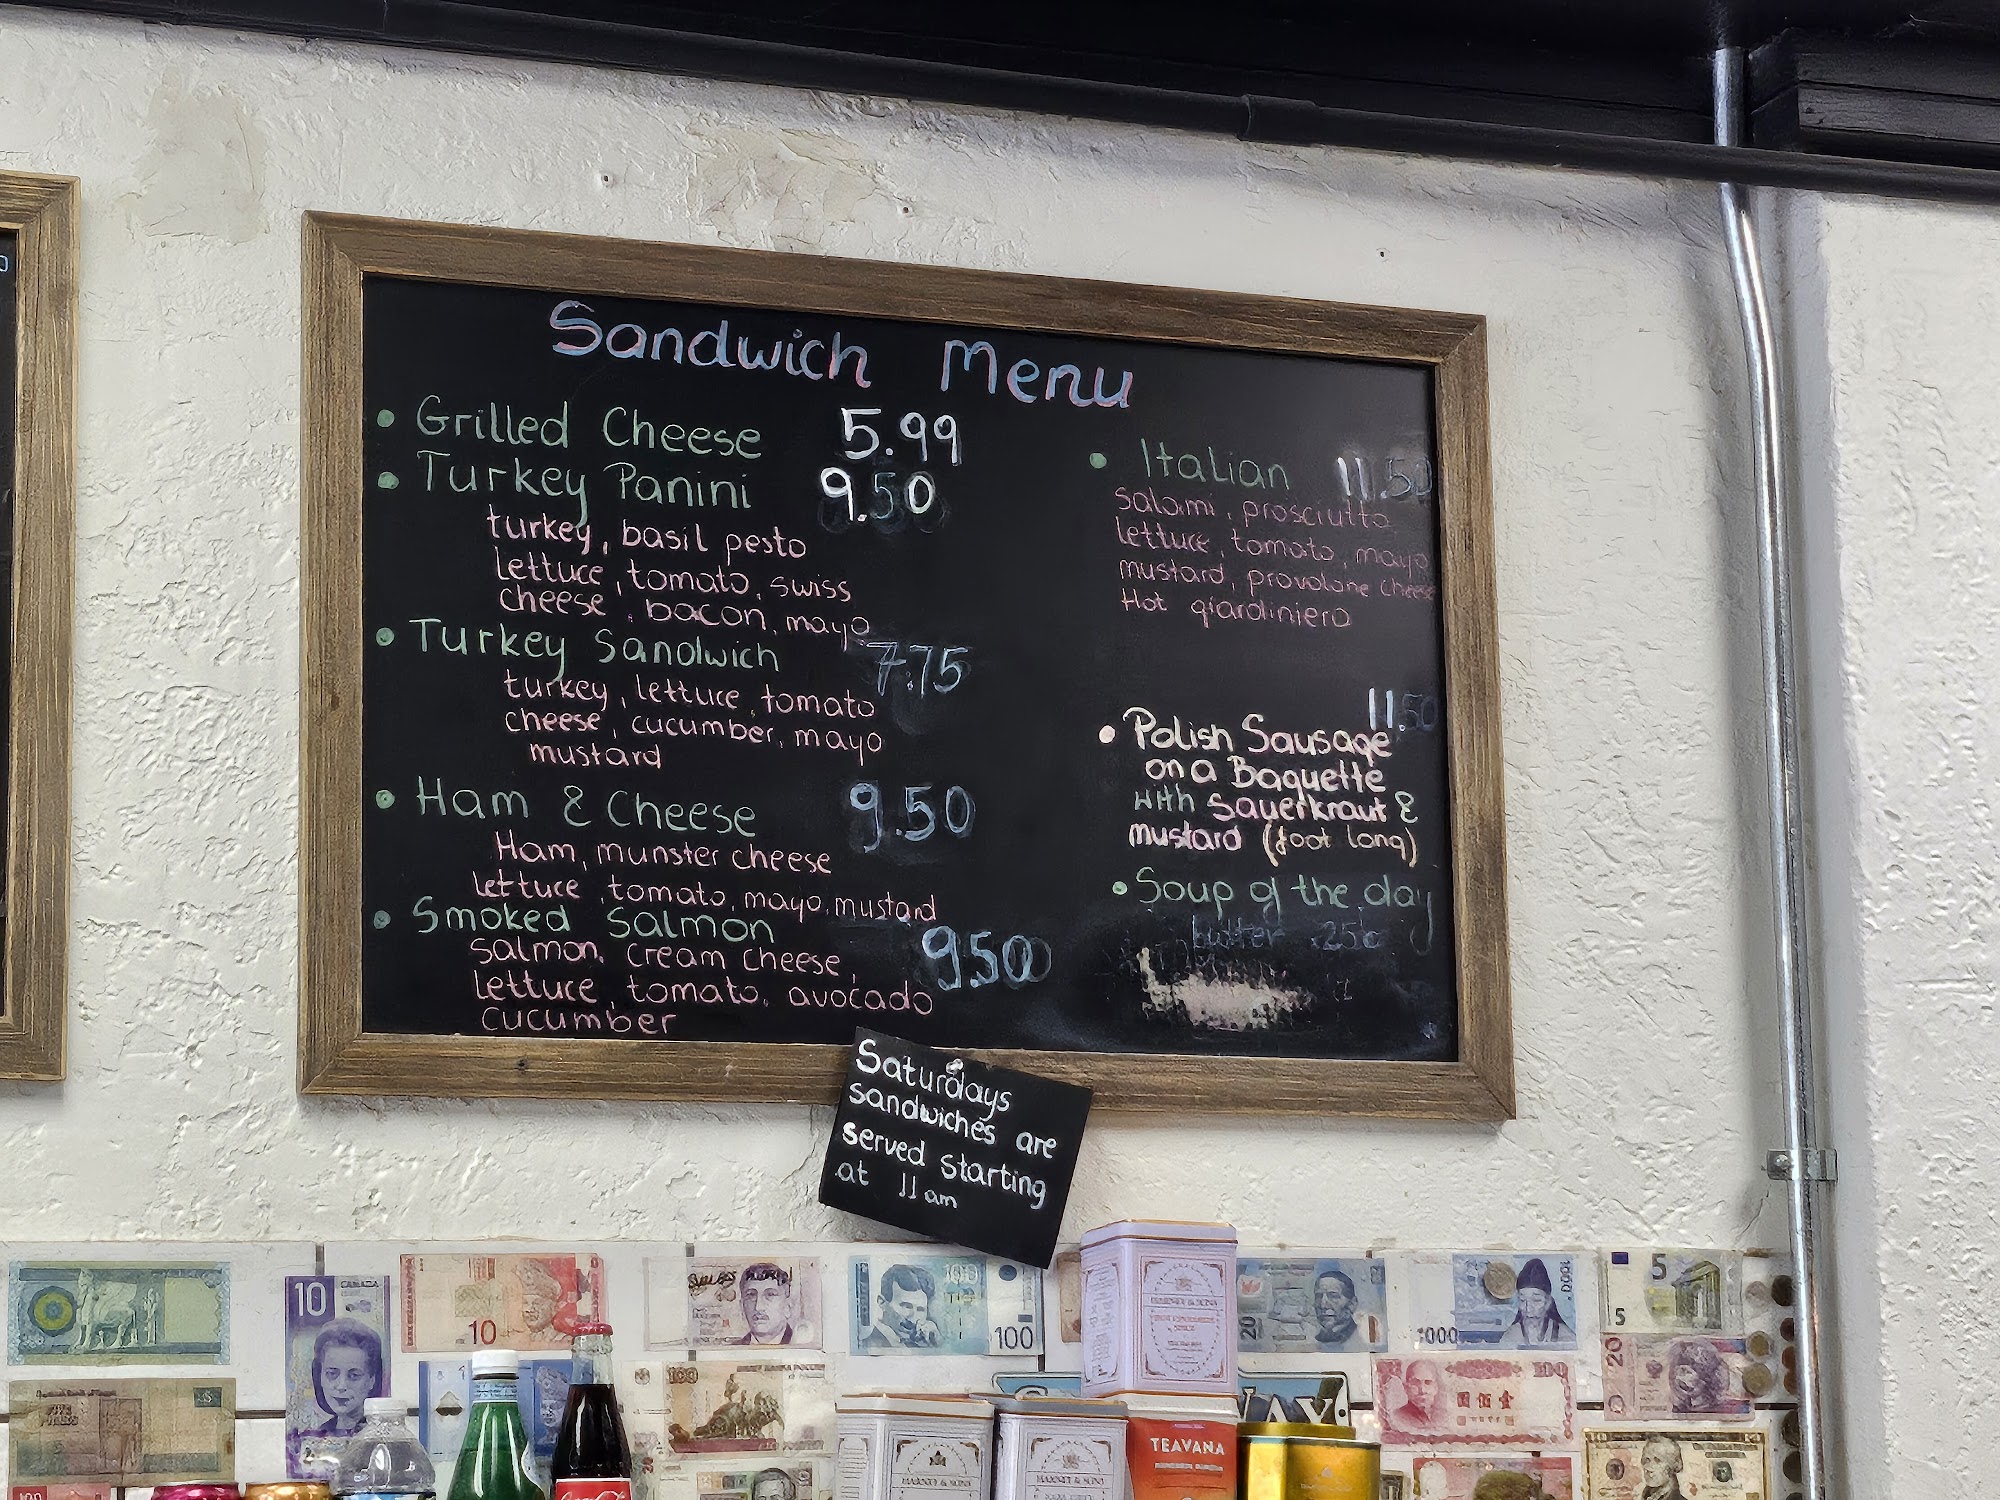 Sandwich Menu
• Grilled Cheese 5.99
• Turkey Panini 9.50
turkey, basil pesto
lettuce, tomato, swiss
cheese, bacon, mayo
• Turkey Sandwich 7.75
turkey, lettuce, tomato
cheese, cucumber, mayo
mustard
• Ham & Cheese 9.50
Ham, munster cheese
lettuce, tomato, mayo, mustard
• Smoked Salmon 9.50
salmon, cream cheese,
lettuce, tomato, avocado
cucumber
• Italian 11.50
salami, prosciutto
lettuce, tomato, mayo
mustard, provolone cheese
Hot giardiniera
11.50
• Polish Sausage
on a Baguette
with Sauerkraut &
mustard (foot long)
• Soup of the day
butter .25¢
Saturdays
sandwiches are
served starting
at 11am
10
CANADA
10
100
100
20
1000
5
5
100
100
20
TEAVANA
HARNEY & SONS
HARNEY & SONS
HARNEY & SONS
10